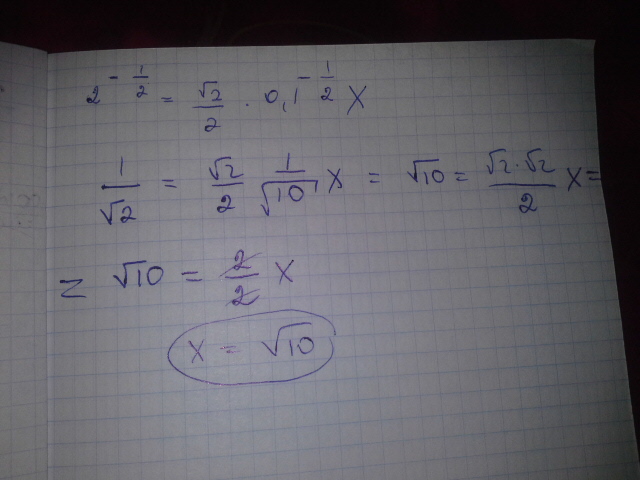 2^{-\frac{1}{2}} = \frac{\sqrt{2}}{2} \cdot 0,1^{-\frac{1}{2}} X
\frac{1}{\sqrt{2}} = \frac{\sqrt{2}}{2} \frac{1}{\sqrt{10}} X = \sqrt{10} = \frac{\sqrt{2} \cdot \sqrt{2}}{2} X =
= \sqrt{10} = \frac{2}{2} X
X = \sqrt{10}